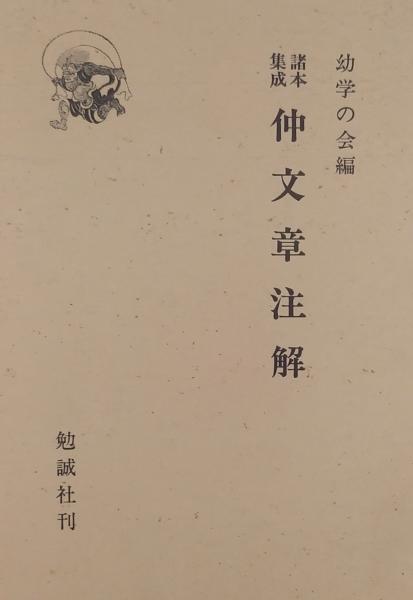 幼学の会編
諸本集成
仲文章注解
勉誠社刊